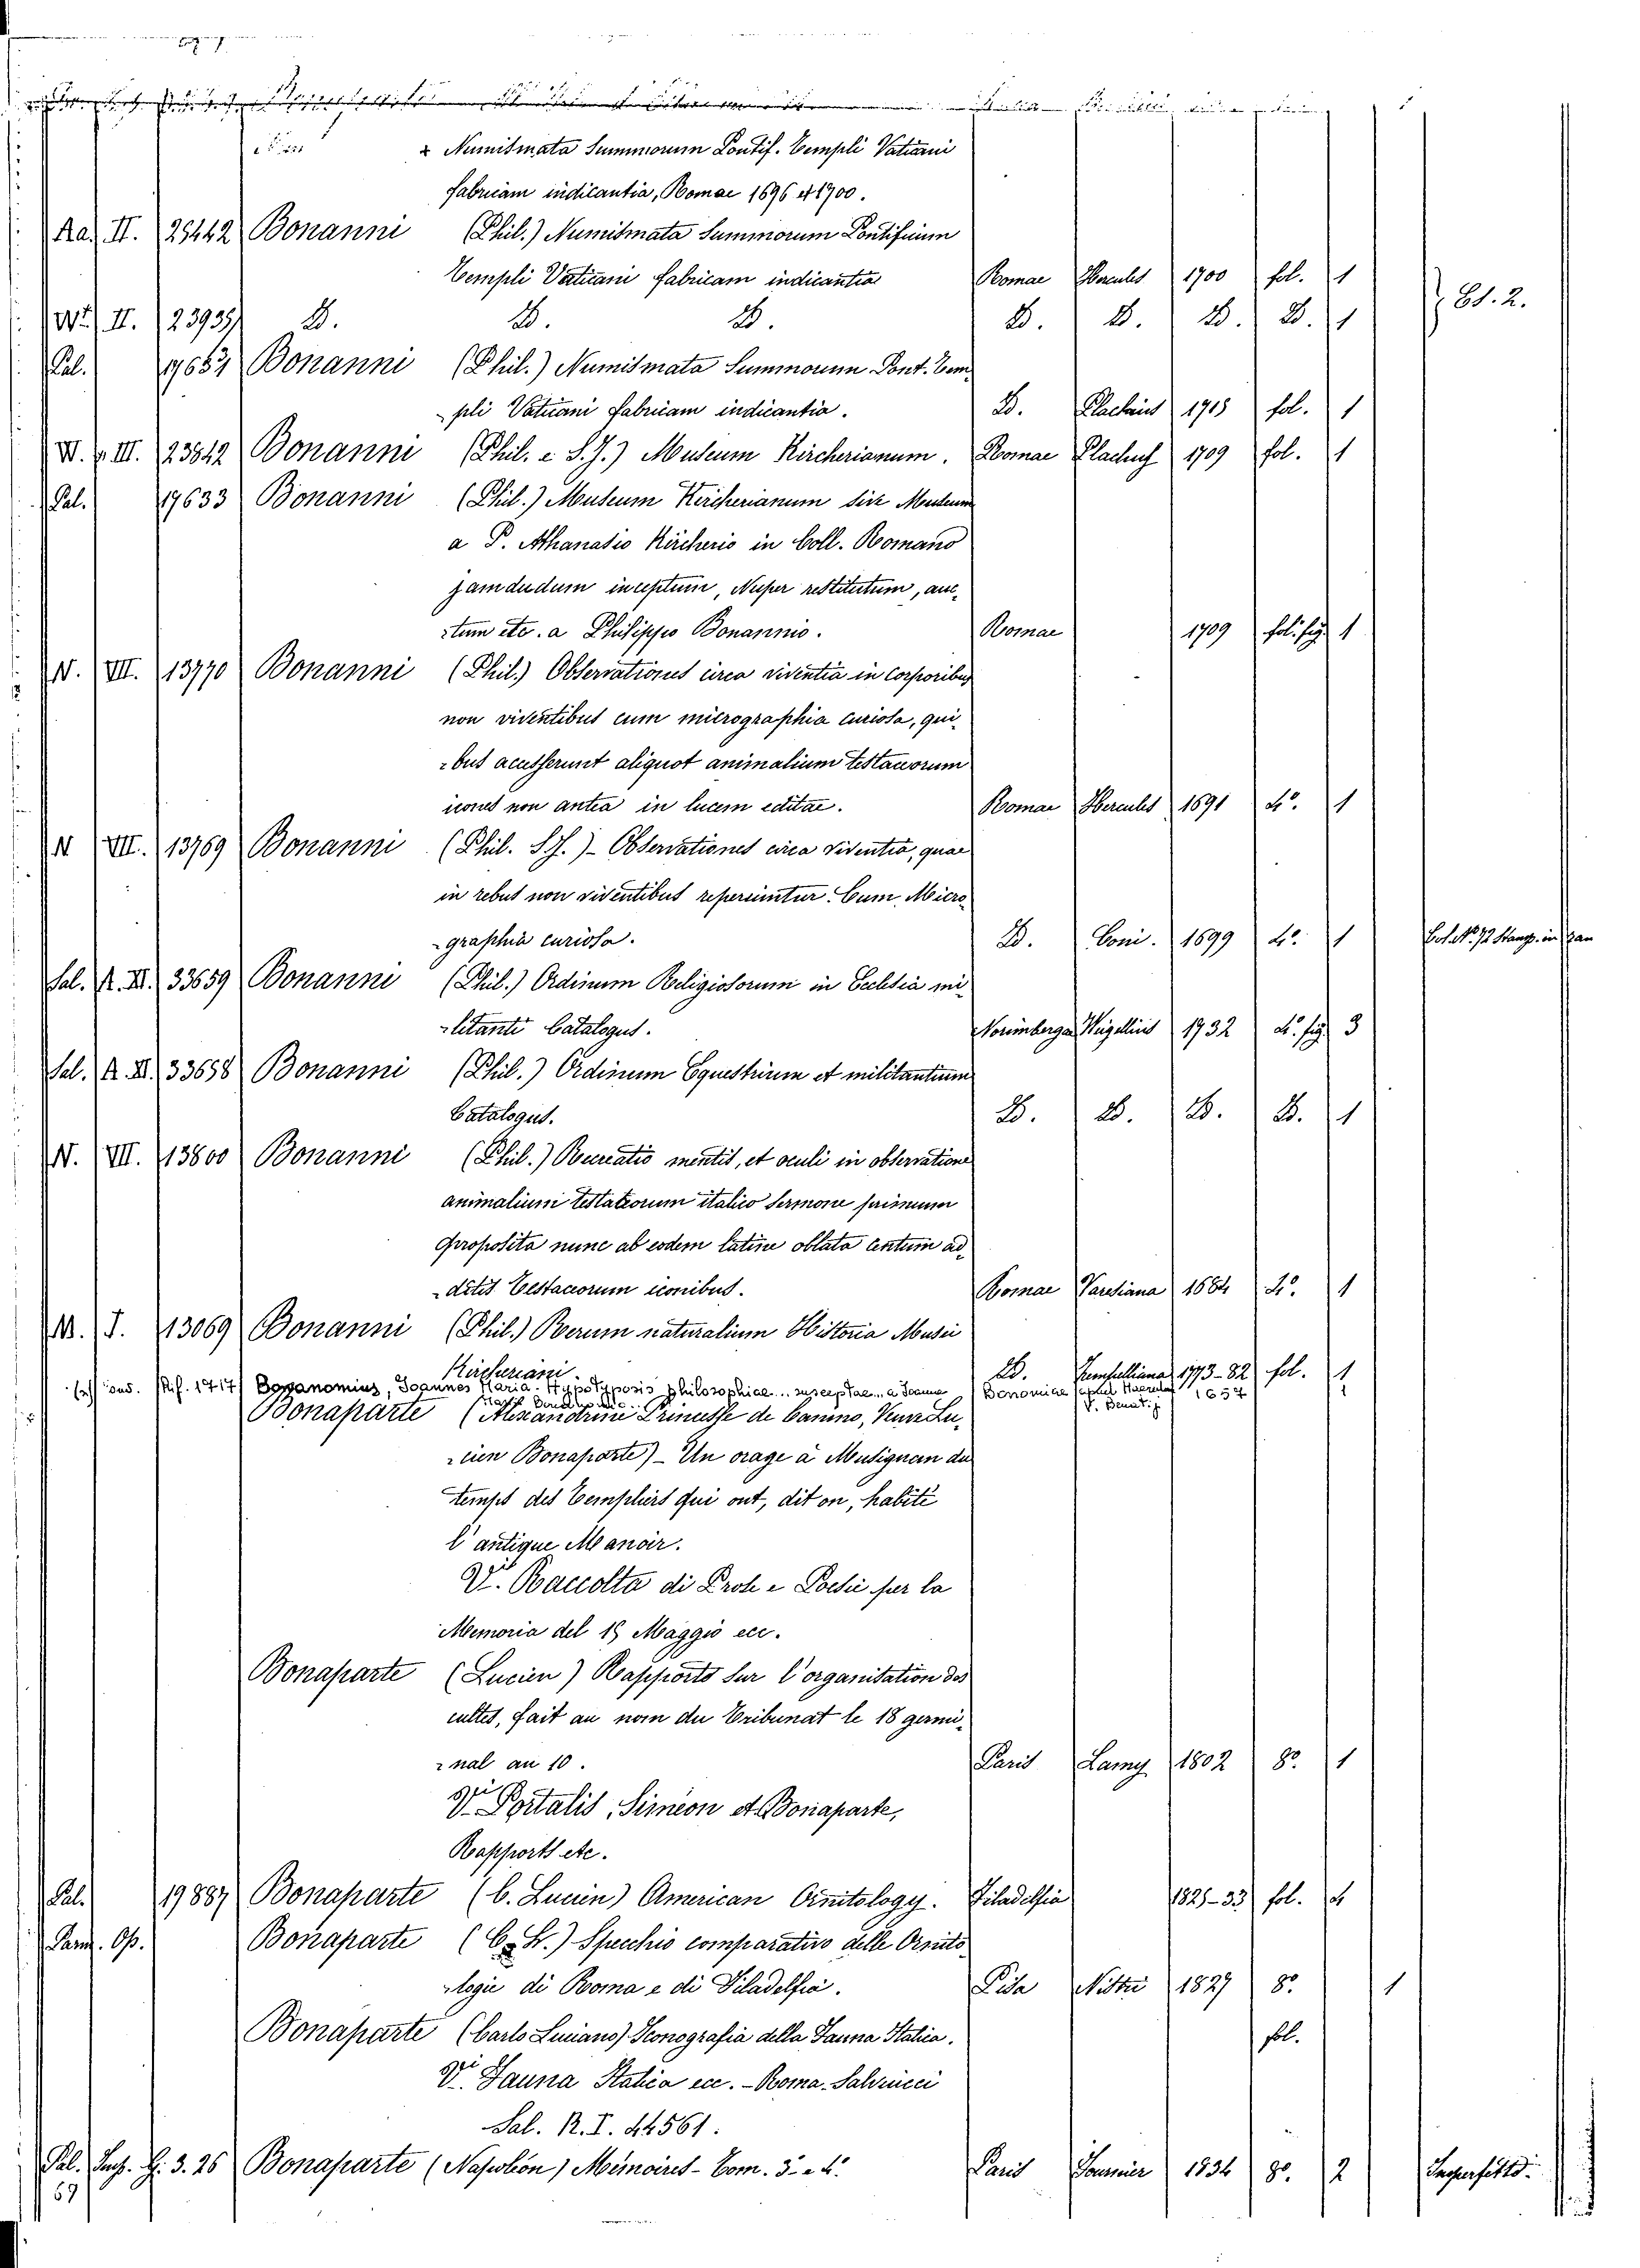 Numismata Summorum Pontif. Templi Vaticani
fabricam indicantia, Romae 1696 et 1700.
Aa. II. 28442 Bonanni (Phil.) Numismata Summorum Pontificum
Templi Vaticani fabricam indicantia Romae Hercules 1700 fol. 1
II. 23939 D. D. D. D. D. D. D. 1 Ed. 2.
Pal. 17657 Bonanni (Phil.) Numismata Summorum Pont. Tem
pli Vaticani fabricam indicantia. D. Plachius 1715 fol. 1
VI. p. III. 23642 Bonanni (Phil. e S.J.) Museum Kircherianum. Romae Plachus 1709 fol. 1
Pal. 17633 Bonanni (Phil.) Museum Kircherianum sive Museum
a P. Athanasio Kircherio in Coll. Romano
jamdudum inceptum, Nuper restitutum, auc
tum etc. a Philippo Bonannio. Romae 1709 fol. fig. 1
N. VII. 13770 Bonanni (Phil.) Observationes circa viventia in corporibus
non viventibus cum micrographia curiosa, qui
bus accesserunt aliquot animalium testaceorum
icones non antea in lucem editae. Romae Hercules 1691 4º. 1
N VII. 13769 Bonanni (Phil. S.J.) - Observationes circa viventia, quae
in rebus non viventibus reperiuntur. Cum Micro
graphia curiosa. D. Coni. 1699 4º. 1
Sal. R. II. 33659 Bonanni (Phil.) Ordinum Religiosorum in Ecclesia mi
litanti Catalogus. Norimbergae Weigelius 1732 4º. fig. 3
Sal. R. II. 33658 Bonanni (Phil.) Ordinum Equestrium et militantium
Catalogus. D. D. D. D. 1
N. VII. 13800 Bonanni (Phil.) Recreatio mentis, et oculi in observatione
animalium testaceorum italico sermone primum
proposita nunc ab eodem latine oblata centum ad
ditis Testaceorum iconibus. Romae Varesiana 1684 4º. 1
M. I. 13069 Bonanni (Phil.) Rerum naturalium Historia Musei
Kircheriani. D. Zempelliana 1773-82 fol. 1
1717 Bonanomius, Joannes Maria. Hypotyposis philosophiae... susceptae... a Joanne Bononiae 1657 1
Bonaparte (Alexandrine Princesse de Canino, Veuve Lu
cien Bonaparte) - Un orage à Musignan du
temps des Templiers qui ont, dit on, habité
l'antique Manoir.
Vi Raccolta di Prose e Poesie per la
Memoria del 15 Maggio ecc.
Bonaparte (Lucien) Rapports sur l'organisation des
cultes, fait au nom du Tribunat le 18 germi
nal an 10. Paris Lamy 1802 8º. 1
Vi Portalis, Siméon et Bonaparte,
Rapports etc.
Pal. 19887 Bonaparte (C. Lucien) American Ornitology. Filadelfia 1825-33 fol. 4
Bonaparte (C. L.) Specchio comparativo delle Ornito
logie di Roma e di Filadelfia. Pisa Nistri 1827 8º 1
Bonaparte (Carlo Luciano) Iconografia della Fauna Italica. fol.
Vi Fauna Italica ecc. - Roma - Salviucci
Sal. R. I. 44561.
Pal. Imp. G. 3. 26 Bonaparte (Napoléon) Mémoires - Tom. 3. e 4. Paris Fournier 1834 8º. 2 Imperfetto.